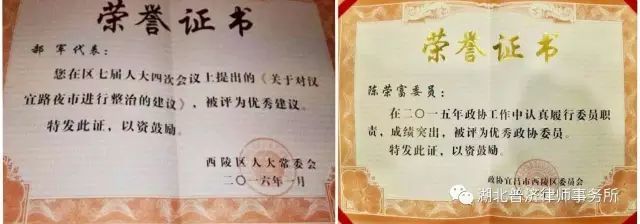 荣誉证书
郝 军代表：
您在区七届人大四次会议上提出的《关于对汉
宜路夜市进行整治的建议》，被评为优秀建议。
特发此证，以资鼓励。
西陵区人大常委会
二〇一六年一月
荣誉证书
陈荣富委员：
在二〇一五年政协工作中认真履行委员职
责，成绩突出，被评为优秀政协委员。
特发此证，以资鼓励。
政协宜昌市西陵区委员会
湖北普济律师事务所